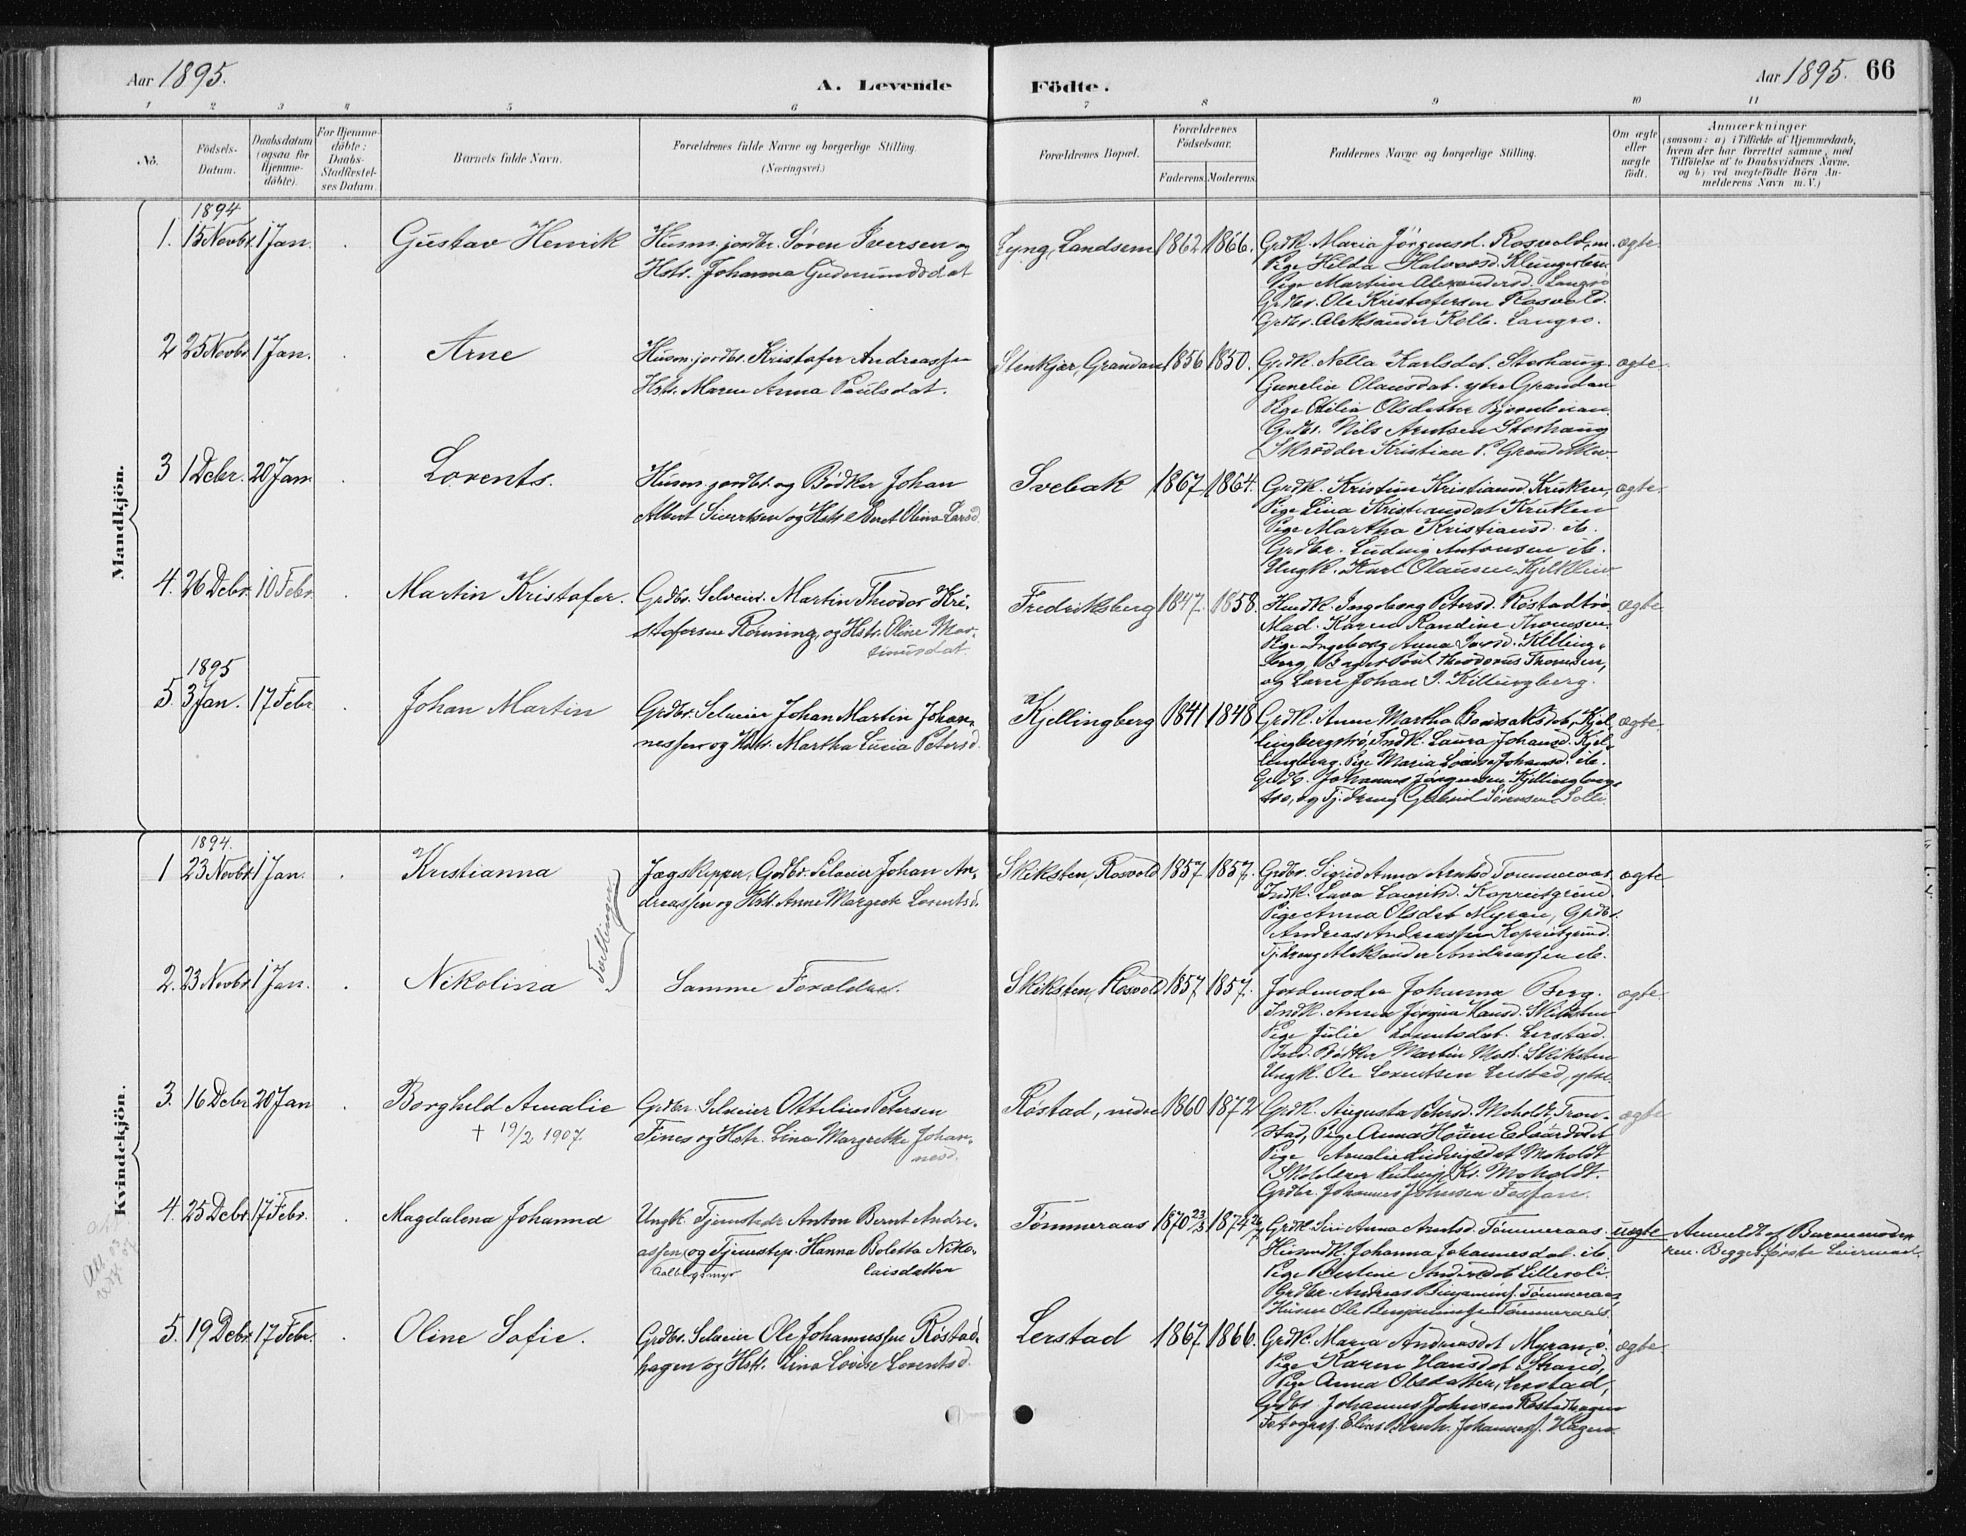 Aar 1895.
A. Levende
Födte.
Aar 1895. 66
1 2 3 4 5 6 7 8 9 10 11
No.
Födsels-Datum.
Daabsdatum (ogsaa for Hjemmedöbte).
For Hjemmedöbte: Daabs-Stadfæstelses Datum.
Barnets fulde Navn.
Forældrenes fulde Navne og borgerlige Stilling.
(Næringsvei.)
Forældrenes Bopæl.
Forældrenes Födselsaar.
Faderens. Moderens.
Faddernes Navne og borgerlige Stilling.
Om ægte eller uægte födt.
Anmærkninger
(saasom: a) i Tilfælde af Hjemmedaab,
hvem der har forrettet samme, med
Tilföielse af to Daabsvidners Navne.
og b) ved uegtefödte Börn Anmelderens Navn m. V.)
Mandkjön.
1894
1. 15 Novbr. 1 Jan. Gustav Henrik
Husm. jordbr. Søren Iversen og
Hstr. Johanna Gudmundsdat
Lyng, Landsem 1862 1866.
Grdk. Maria Jörgensd. Rosvold,
Pige Hilda Halvorsd.
Pige Martine Alexandersd. Langrö
Grdbr. Ole Kristofersen Rosvold.
Grdbr. Aleksander Langrö.
ægte.
2 25 Novbr. 1 Jan. Arne
Husm. jordbr. Kristofer Andreassen
Hstr. Maren Anna Paulsdat.
Stenkjær, Grandan 1856 1850.
Grdk. Nella Karlsdat. Storhaug
Gunelia Olausdat. ytre Grandan
Pige Otilia Olsdatter
Grdbr. Nils Arntsen Storhaug
Skrødder Kristian P.
ægte.
3 1 Debr. 20 Jan. Lorents.
Husm. jordbr. og Bødker Johan
Albert Sivertsen og Hstr. Beret Olina Larsd.
Svebak 1867 1864.
Grdk. Kristine Kristiansd. Kruken,
Pige Lina Kristiansdat Kruken
Pige Martha Kristiansd. ib.
Grdbr. Ludvig Antonsen ib.
Ungk. Karl Olausen
ægte.
4. 26 Debr. 10 Febr. Martin Kristofer.
Grdbr. Selveier. Martin Theodor Kri-
stofersen Rønning, og Hstr. Oline Mar-
tinusdat.
Fredriksberg 1847. 1858.
Husk. Ingeborg Petersd. Røstadtrø
Mad. Karen Randine Thomsen
Pige Ingeborg Anna Killing-
berg, Poul Theodorus Thomsen,
og Johan J. Killingberg.
ægte
1895
5. 3 Jan. 17 Febr. Johan Martin
Grdbr. Selveier Johan Martin Johan-
nessen og Hstr. Martha Lucia Petersd.
Kjellingberg 1841 1848
Grdk. Anne Martha Kjel-
lingbergstrø, Indk. Laura Johansd. Kjel-
lingberg. Pige Maria Lovise Johansd. ib.
Grdb. Johannes Jörgensen Kjellingbergs-
trø, og Tj.dreng Gabriel Sørensen
ægte.
Kvindekjön.
1894.
1 23 Novbr. 1 Jan. Kristianna
Jægskipper, Grdbr. Selveier Johan An-
dreassen og Hstr. Anne Margrete Lorentsd.
Skiksten, Rosvold 1857 1857.
Grdbr. Sigrid Anna Arntsd Tømmeraas
Indk. Lava Lauritsd.
Pige Anna Olsdat Myran, Grdbr.
Andreas Andreassen
Tj.dreng Aleksander Andreassen ib.
ægte
Tvillinger
2. 23 Novbr 1 Jan. Nikolina
Samme Foraldre.
Skiksten, Rosvold 1857 1857.
Jordemoder Johanna Berg.
Indk. Anna Jørgine Hansd. Skiksten
Pige Julie Lorentsdat. Lerstad.
Ind. Bødker Martin Skiksten
Ungk. Ole Lorentsen Lerstad, ytre
ægte.
3. 16 Debr 20 Jan Borghild Amalie
† 19/2 1907.
Grdbr. Selveier Ottilius Petersen
Tines og Hstr. Lina Margrethe Johan-
nesd.
Røstad, nedre 1860 1872
Grdk. Augusta Petersd. Moholdt, Tron-
stad, Pige Anna Edvardsdat
Pige Amalie Ludvigsdat Moholdt
Skolelærer Ludvig Kr. Moholdt.
Grdbr. Johannes Johnsen
ægte
4. 25 Debr. 17 Febr. Magdalena Johanna
Ungk. Tjenestedr. Anton Bernt Andre-
assen og Tjenestep. Hanna Boletta Niko-
laisdatter
Aalbergsmyr
Tømmeraas 1870 23/3 1874
Grdk. Siri Anna Arntsd. Tømmeraas.
Husmdk. Johanna Johannesdat. ib.
Pige Bertine Andersdat Lilleroli.
Grdbr. Andreas Benjamins. Tømmeraas
Husm Ole Benjaminsen Tømmeraas.
uægte
Anmeldt af Barnemoder-
ren. Begges første Leiermaal.
5. 19 Debr. 17 Febr. Oline Sofie.
Grdbr. Selveier Ole Johannessen Røstad-
hagen og Hstr. Lina Lovise Lorentsd.
Lerstad 1867. 1866.
Grdk. Maria Andreasdat Myran,
Pige Karen Hansdat Strand,
Pige Anna Olsdatter, Lerstad,
Grdbr. Johannes Johnsen Røstadhagen
Fotograf. Elias Bernh. Johanness. Hagen.
ægte.